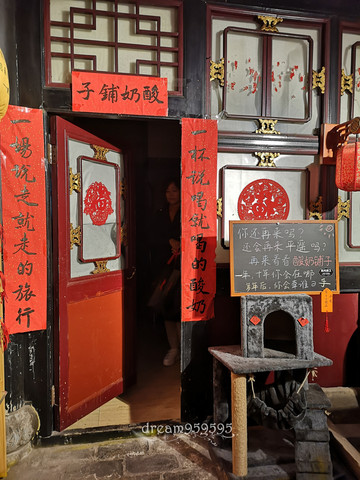 子铺奶酸
一杯说喝就喝的酸奶
一场说走就走的旅行
你还再来吗?
还会再来平遥吗?
再来看看酸奶铺子
一年 十年你会在哪
dream959595